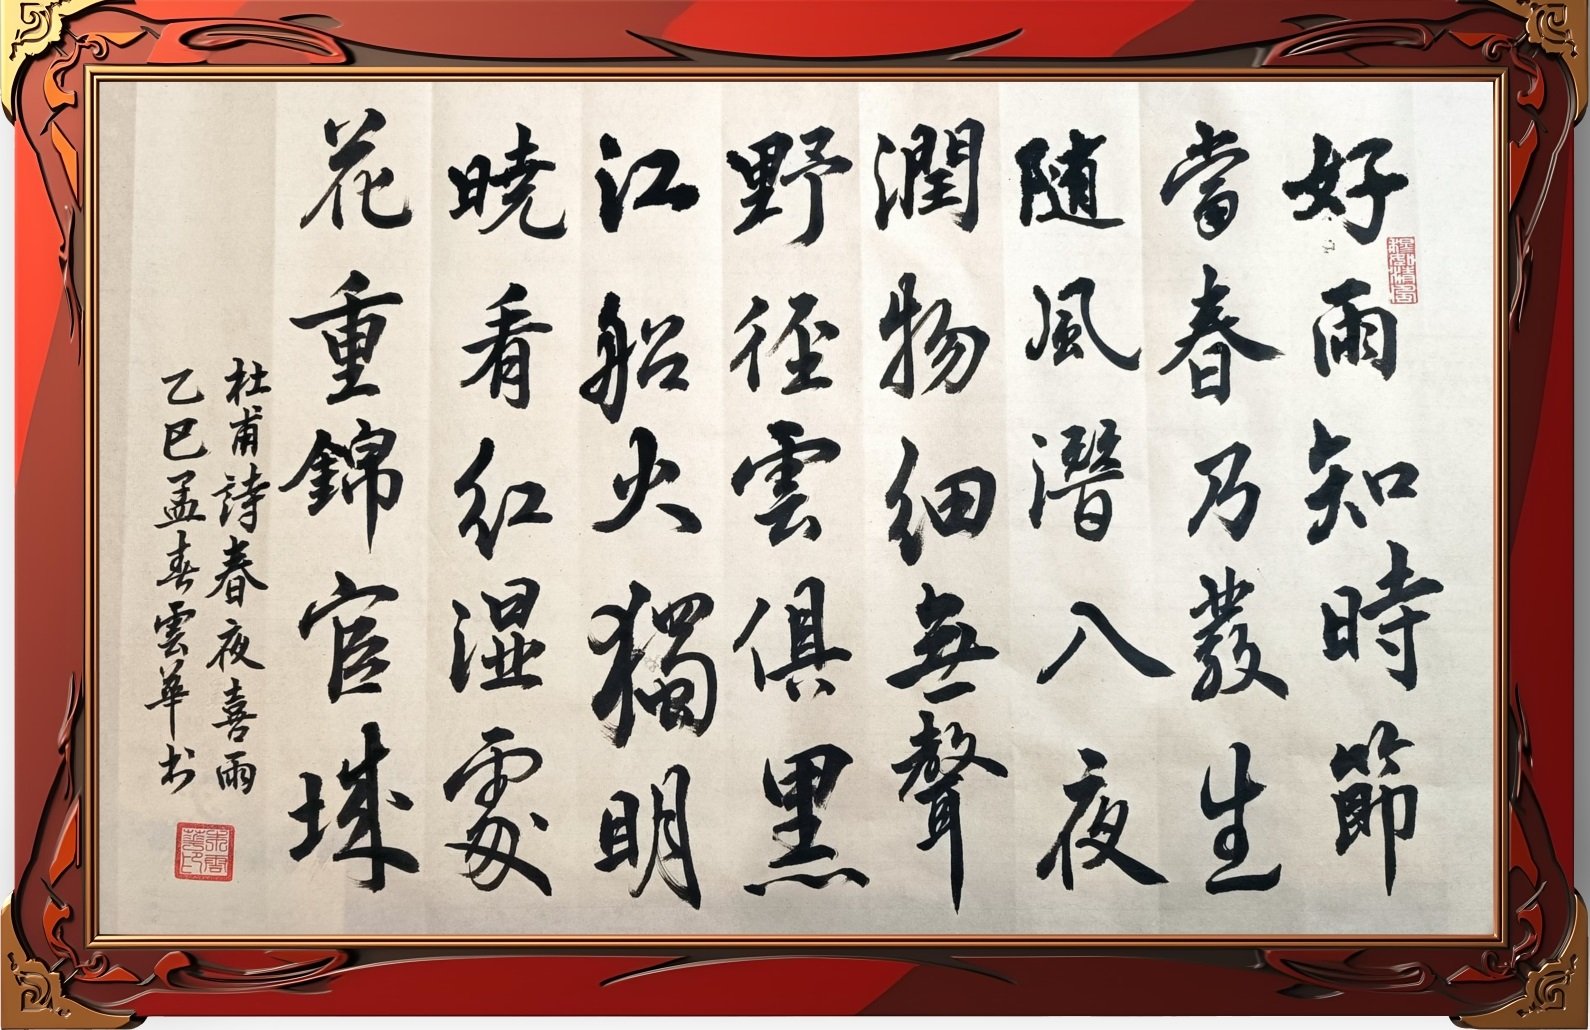 好雨知時節
當春乃發生
随風潛入夜
潤物細無聲
野径雲俱黑
江船火獨明
曉看紅湿處
花重錦官城
杜甫詩春夜喜雨
乙巳孟春雲華书